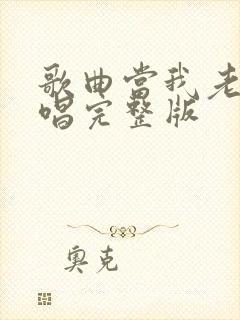 歌曲当我老
唱完整版
奥克